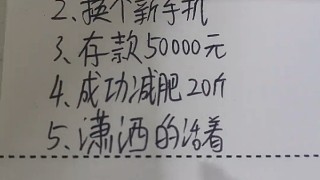 2、换个新手机
3、存款50000元
4、成功减肥20斤
5、潇洒的活着